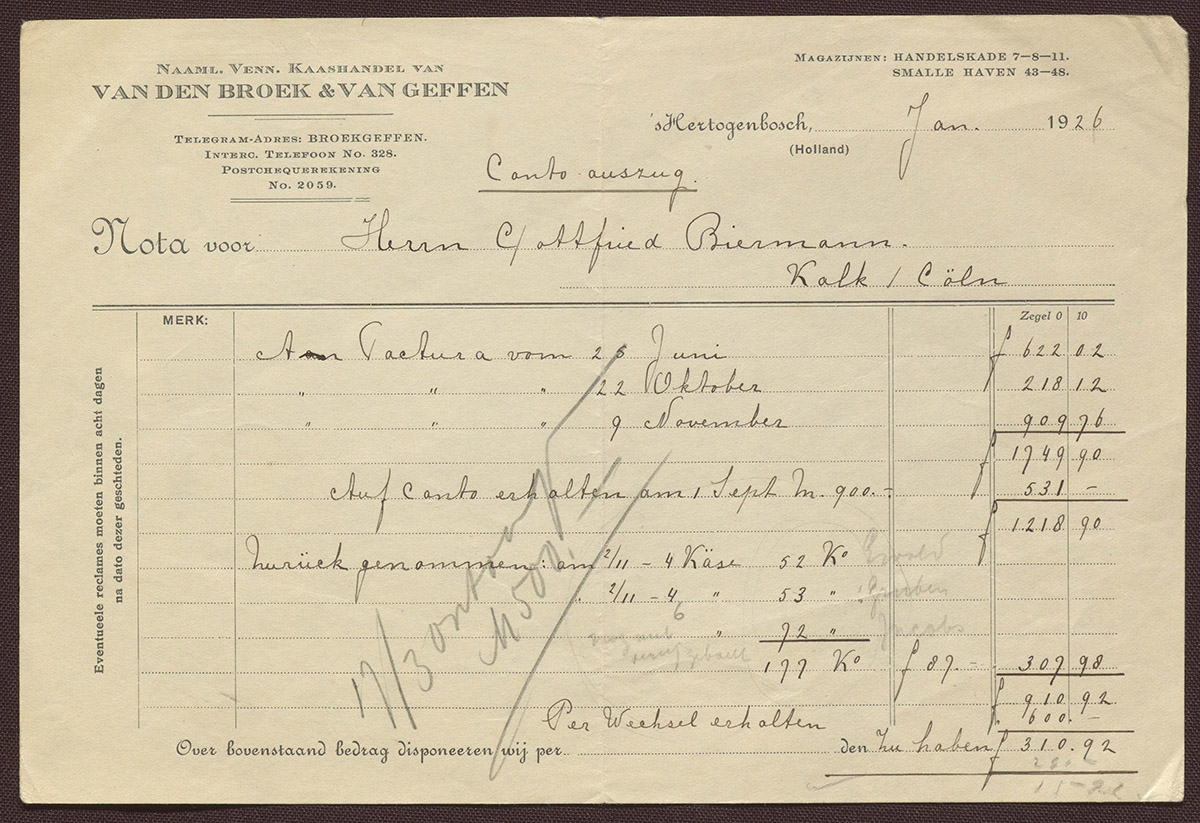 NAAML. VENN. KAASHANDEL VAN
VAN DEN BROEK & VAN GEFFEN
TELEGRAM-ADRES: BROEKGEFFEN.
INTERC. TELEFOON No. 328.
POSTCHEQUEREKENING
No. 2059.
MAGAZIJNEN: HANDELSKADE 7—8—11.
SMALLE HAVEN 43—48.
'sHertogenbosch, Jan. 1926
(Holland)
Conto auszug.
Nota voor Herrn Gottfried Biermann.
Kalk / Cöln
MERK: Zegel 0 10
An Factura vom 25 Juni f 622 02
" " " 22 Oktober 218 12
" " " 9 November 909 76
f 1749 90
Auf Conto erhalten am 1 Sept M. 900.- 531 -
f 1218 90
Zurück genommen: am 2/11 - 4 Käse 52 Ko
2/11 - 4 " 53 "
6 " 72 "
177 Ko f 87.- 307 98
f 910 92
Per Wechsel erhalten 600. -
Over bovenstaand bedrag disponeeren wij per den zu haben f 310.92
17/3 M 500.
Jacobs
Eventueele reclames moeten binnen acht dagen
na dato dezer geschieden.